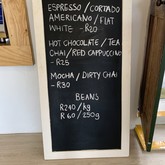 ESPRESSO/CORTADO
AMERICANO/FLAT
WHITE - R20
HOT CHOCOLATE/TEA
CHAI/RED CAPPUCCINO
- R25
MOCHA/DIRTY CHAI
- R30
BEANS
R240/kg
R60/250g